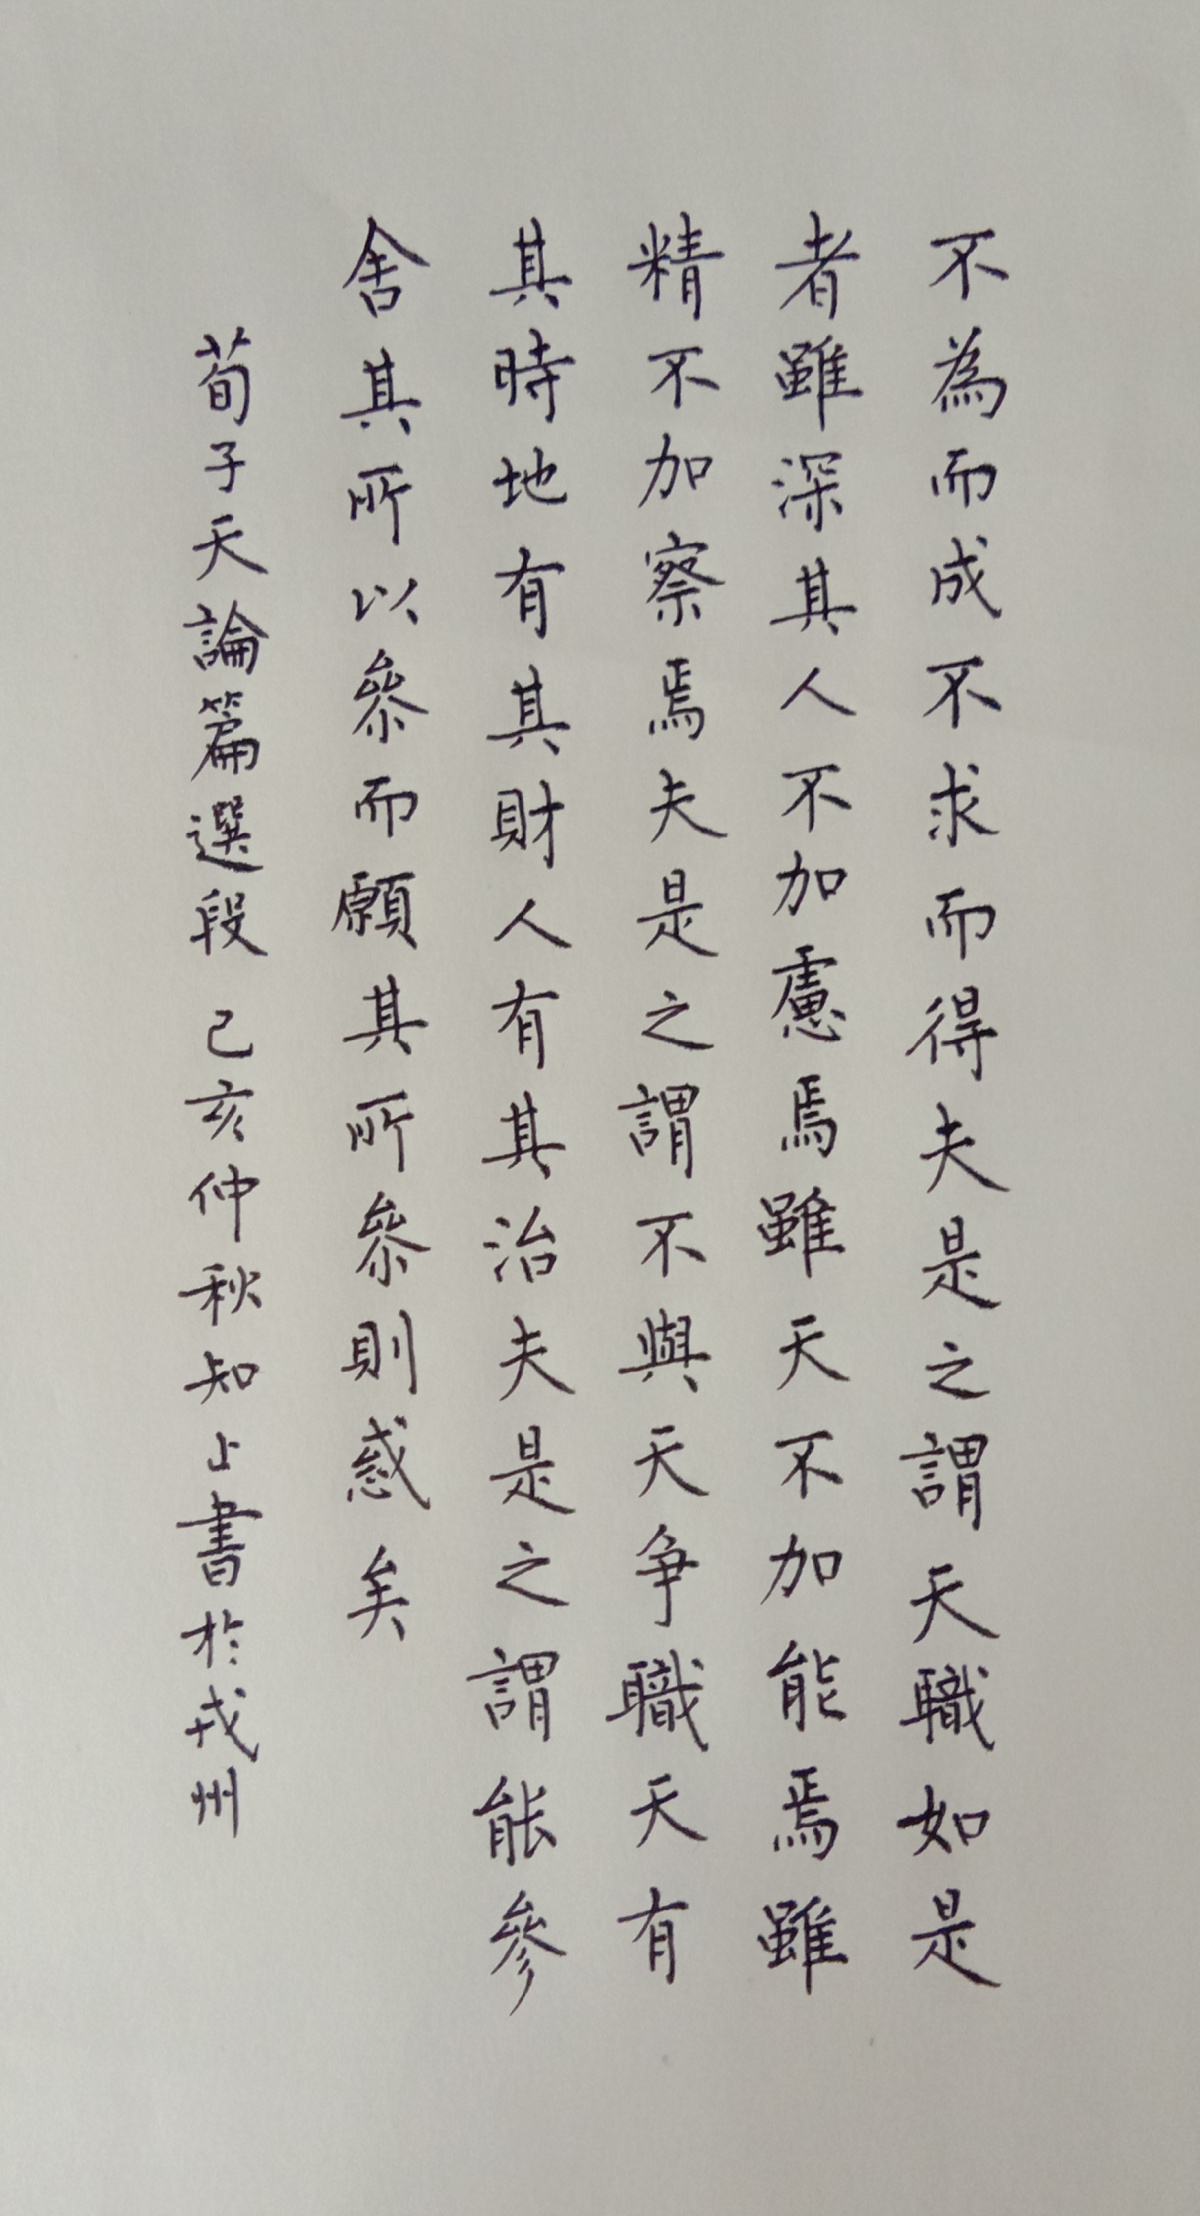 不為而成不求而得夫是之謂天職如是
者雖深其人不加慮焉雖天不加能焉雖
精不加察焉夫是之謂不與天争職天有
其時地有其財人有其治夫是之謂能參
舍其所以參而願其所參則惑矣
荀子天論篇選段 己亥仲秋知止書於戎州